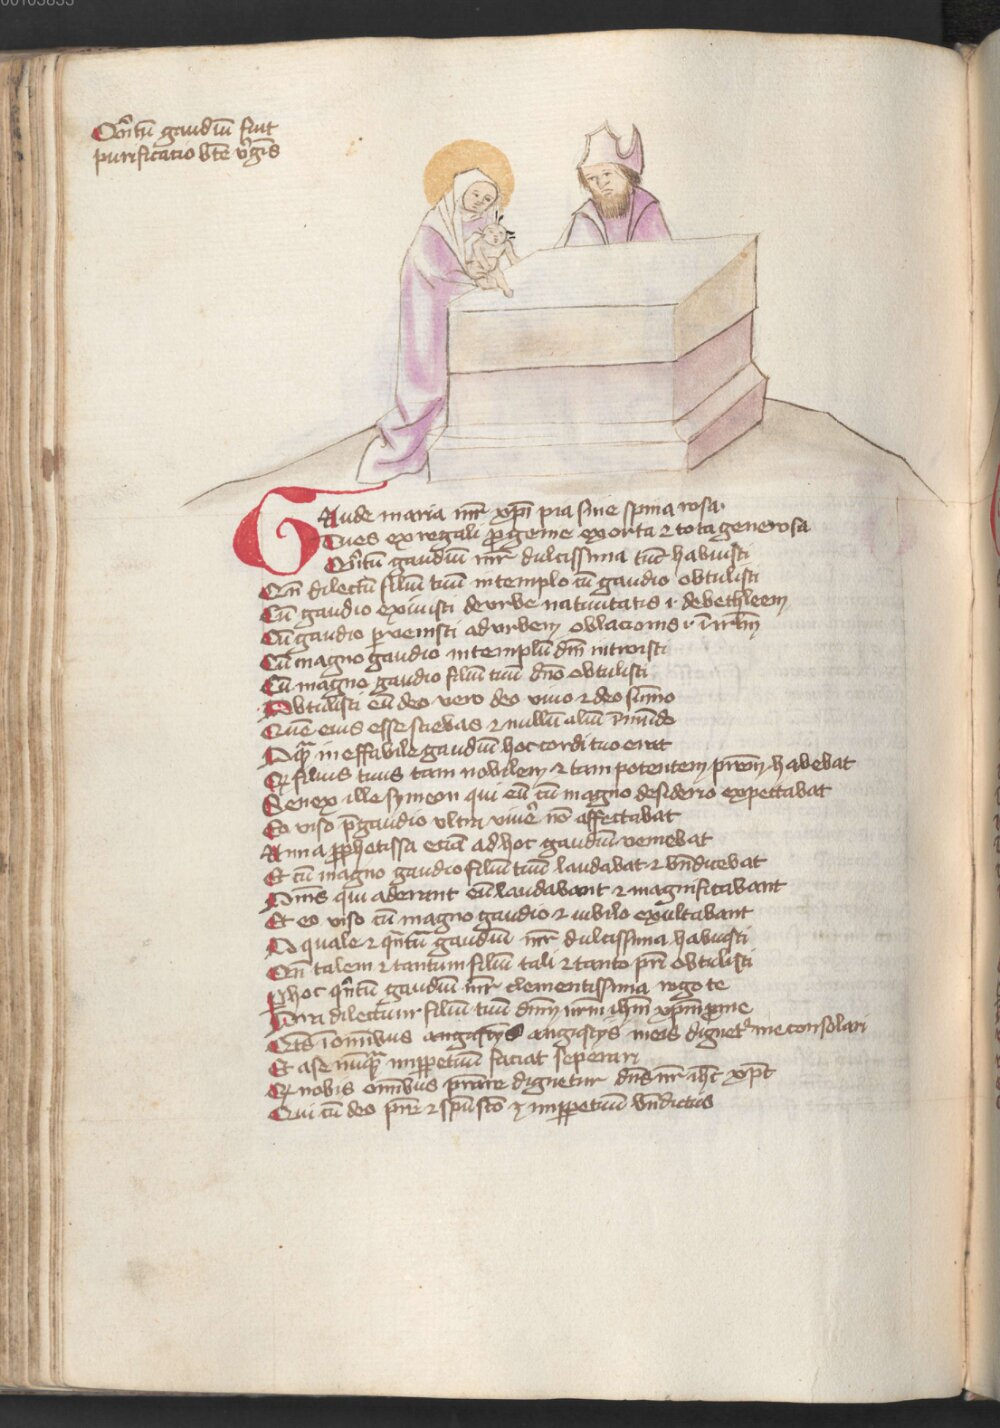 00103855
Qͥntū gaudiū fuit
purificatio bt̄e v̄gīs
Gaude maria mr̄ xp̄i pia sine spina rosa
Tu es ex regali ꝓgenie exorta ⁊ tota generosa
Qͥntū gaudiū mr̄ dulcissima tūc habuisti
Qn̄ dilectū filiū tuū in templo cū gaudio obtulisti
Cū gaudio exiuisti de vrbe natiuitatis .i. de bethleem
Cū gaudio ꝑuenisti ad vrbem oblacionis .i. ī irl̄m
Cū magno gaudio in templū dn̄i introisti
Cū magno gaudio filiū tuū dn̄o obtulisti
Obtulisti eū deo vero deo viuo ⁊ deo sūmo
Quē eius esse sciebas ⁊ nullū aliū ī mūdo
O qͣ ineffabile gaudiū hoc cordi tuo erat
Qꝫ filius tuus tam nobilem ⁊ tam potentem pr̄em habebat
Senex ille symeon qui eū cū magno desiderio expectabat
Eo viso p̄ gaudio vltra viuē nō affectabat
Anna ꝓphetissa eciā ad hoc gaudiū veniebat
Et cū magno gaudio filiū tuū laudabat ⁊ bn̄dicebat
Om̄s qui aderant eū laudabant ⁊ magnificabant
Et eo viso cū magno gaudio ⁊ iubilo exultabant
O quale ⁊ qͥntū gaudiū mr̄ dulcissima habuisti
Qn̄ talem ⁊ tantum filiū tali ⁊ tanto pr̄i obtulisti
Ꝑ hoc qͥntū gaudiū mr̄ clementissima rogo te
Ora dilectum filiū tuū dn̄m nr̄m ih̄m xp̄m ꝓ me
Qts̄ ī omībus angustijs meis dignet me consolari
Et a se nūqͣ imꝑpetuū faciat seperari
Qꝫ nobis omībus prestare dignetur dn̄s nr̄ ih̄c xp̄c
Qui cū deo pr̄e ⁊ spū scō ē imꝑpetuū bn̄dictus